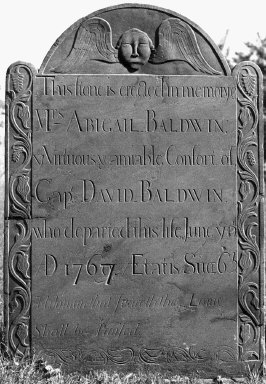 This stone is erected in memory
Mrs ABIGAIL BALDWIN
Virtuous & amiable Consort of
Capt DAVID BALDWIN
who departed this life June ye
AD 1767 Etatis Suæ
Shall be